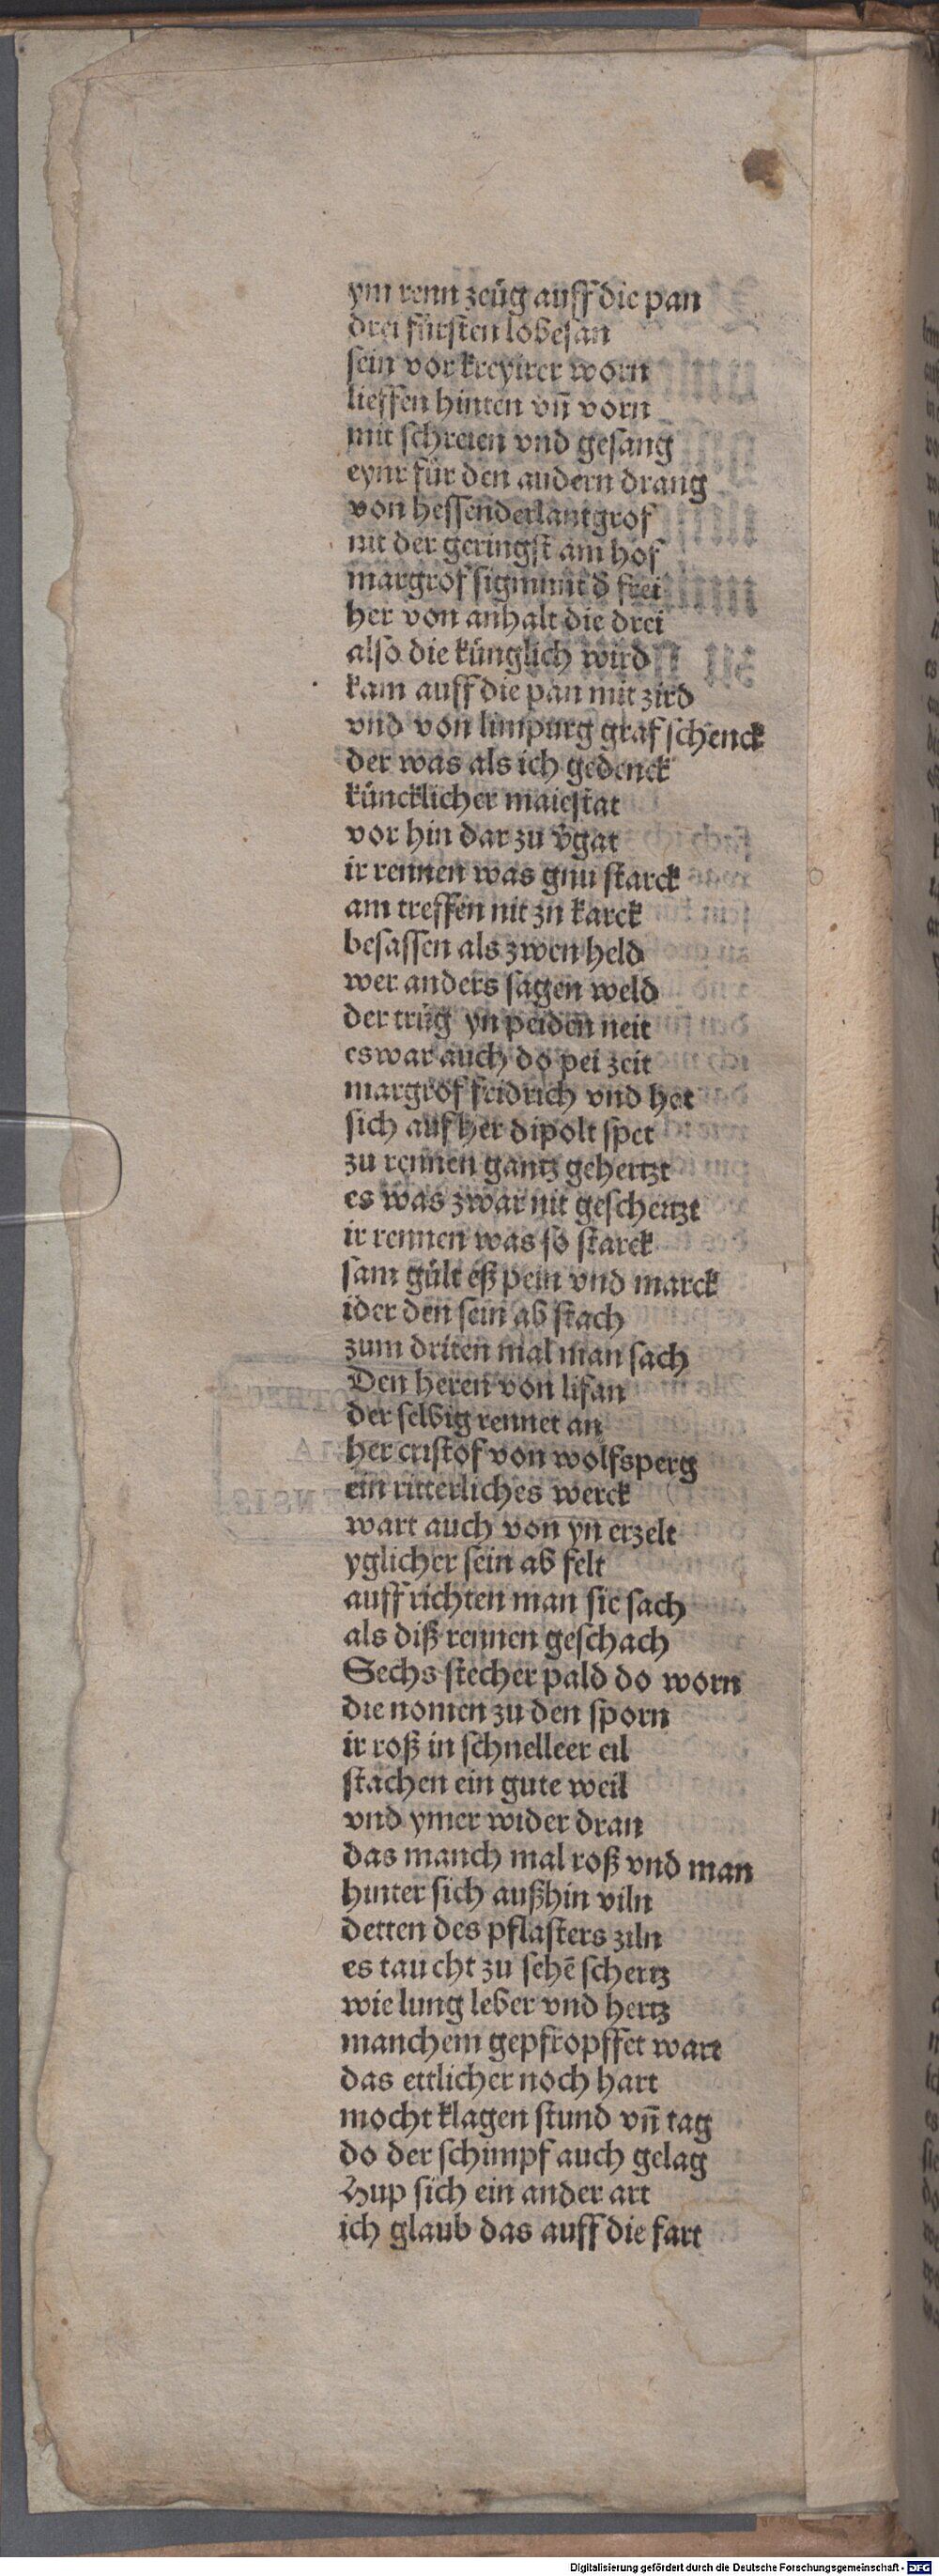 ym renn zeüg auff die pan
drei fürsten lobesan
sein vor kreyirer worn
lieffen hinten vn̄ vorn
mit schreien vnd gesang
eynr für den andern drang
von hessen der lantgrof
nit der geringst am hof
margrof sigmunt d̄ frei
her von anhalt die drei
also die künglich wird
kam auff die pan mit zird
vnd von limpurg graf schenck
der was als ich gedenck
küncklicher maiestat
vor hin dar zu v̄gat
ir rennen was gnu starck
am treffen nit zu karck
besassen als zwen held
wer anders sagen weld
der trüg yn peiden neit
es war auch do pei zeit
margrof fridrich vnd het
sich auf her dipolt spet
zu rennen gantz gehertzt
es was zwar nit geschertzt
ir rennen was so starck
sam gült eß pein vnd marck
ider den sein ab stach
zum driten mal man sach
Den heren von lifan
der selbig rennet an
her cristof von wolfsperg
ein ritterliches werck
wart auch von yn erzelt
yglicher sein ab felt
auff richten man sie sach
als diß rennen geschach
Sechs stecher pald do worn
die nomen zu den sporn
ir roß in schnelleer eil
stachen ein gute weil
vnd ymer wider dran
das manch mal roß vnd man
hinter sich außhin viln
detten des pflasters ziln
es taucht zu sehē schertz
wie lung leber vnd hertz
manchem gepfropffet wart
das ettlicher noch hart
mocht klagen stund vn̄ tag
do der schimpf auch gelag
Hup sich ein ander art
ich glaub das auff die fart
Digitalisierung gefördert durch die Deutsche Forschungsgemeinschaft - DFG